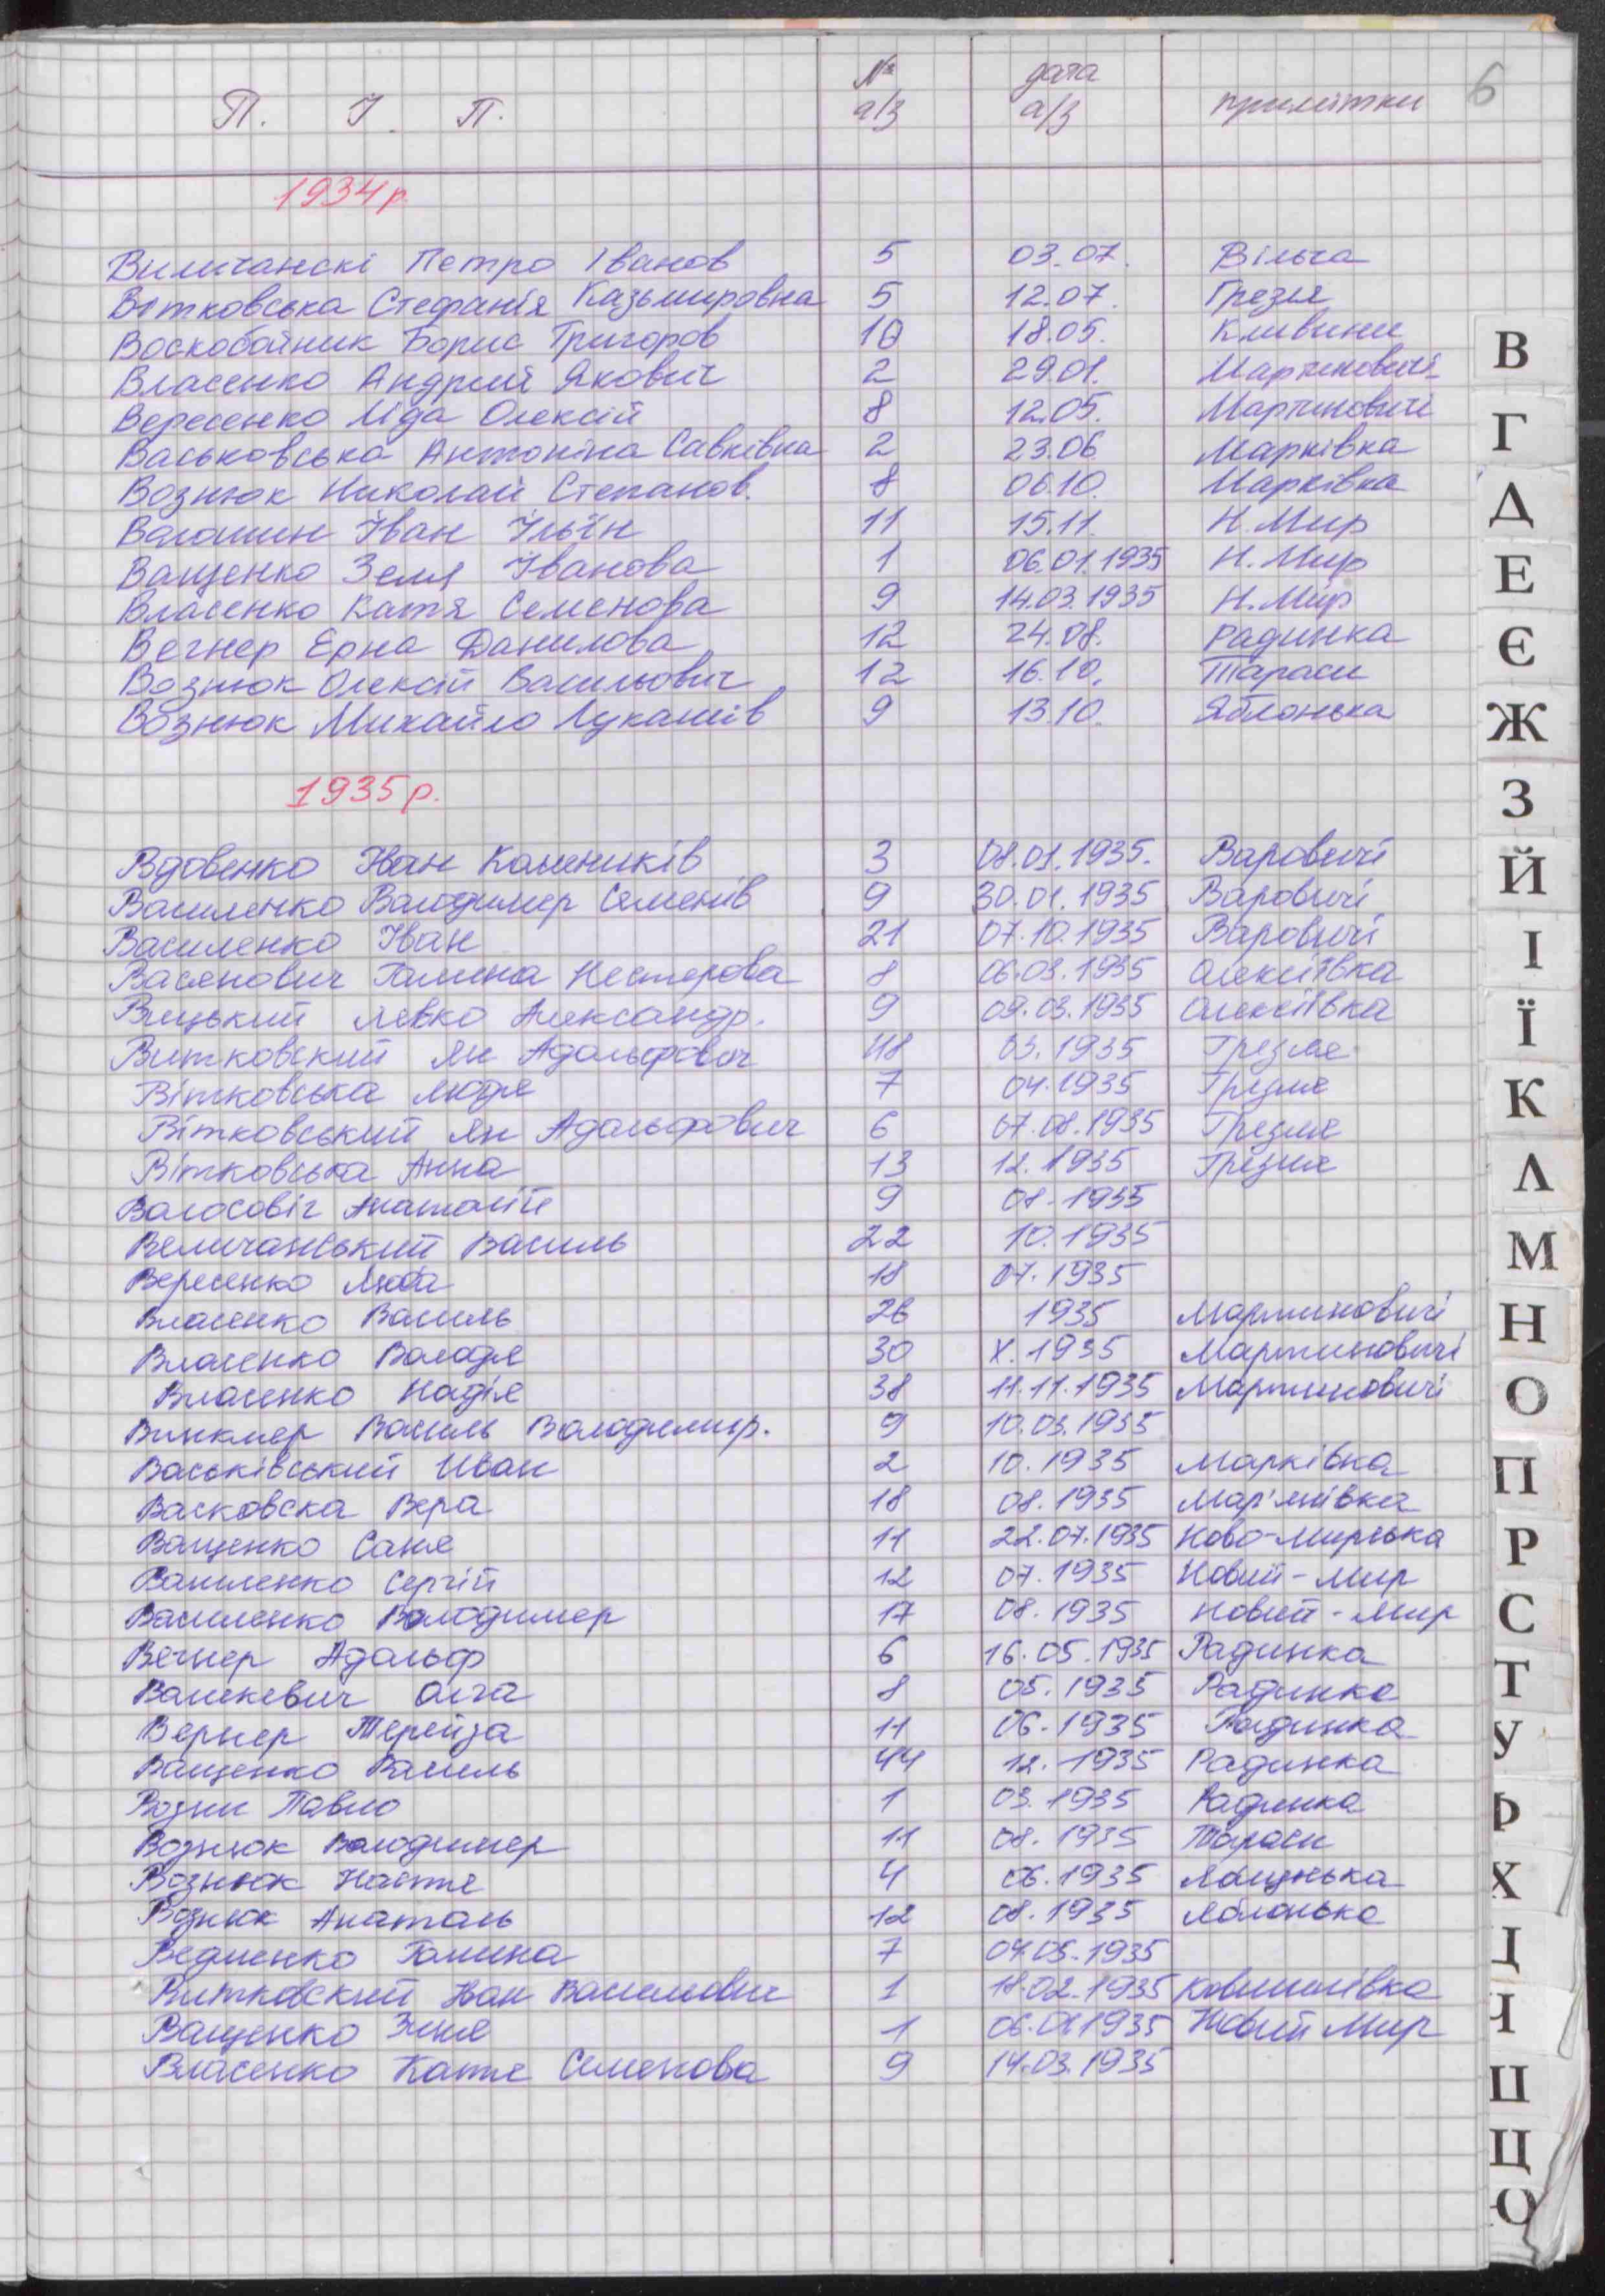 П. І. П. № а/з дата а/з примітки 6
1934 р.
Виличанскі Петро Іванов 5 03.07. Вільча
Вітковська Стефанія Казьмировна 5 12.07. Грезля
Воскобойник Борис Григоров 10 18.05. Кливини
Власенко Андрий Якович 2 29.01. Мартиновичі
Вересенко Ліда Олексій 8 12.05. Мартиновичі
Васьковська Антоніна Савківна 2 23.06 Марківка
Вознюк Николай Степанов. 8 06.10. Марківка
Волошин Іван Ільїн 11 15.11. Н. Мир
Ващенко Зеля Іванова 1 06.01.1935 Н. Мир
Власенко Катя Семенова 9 14.03.1935 Н. Мир
Вегнер Ерна Данилова 12 24.08. Радинка
Вознюк Олексій Васильович 12 16.10. Тараси
Вознюк Михайло Лукашів 9 13.10. Яблонька
1935 р.
Вдовенко Іван 3 08.01.1935. Варовичі
Василенко Володимер Семенів 9 30.01.1935 Варовичі
Василенко Іван 21 07.10.1935 Варовичі
Васянович Галина Нестерова 8 06.03.1935 Олексіївка
Вицький Левко Александр. 9 09.03.1935 Олексіївка
Витковский Ян Адольфович 48 03.1935 Грезля
Вітковська Люда 7 04.1935 Грезля
Вітковський Ян Адольфович 6 07.08.1935 Грезля
Вітковська Анна 13 12.1935 Грезля
Волосовіг Анатолій 9 08.1935
Величанський Василь 22 10.1935
Вересенко Люба 18 07.1935
Власенко Василь 26 1935 Мартиновичі
Власенко Володя 30 X.1935 Мартиновичі
Власенко Надія 38 11.11.1935 Мартиновичі
Винклер Василь Володимир. 9 10.03.1935
Васьківський Иван 2 10.1935 Марківка
Васковска Вера 18 08.1935 Мар'янівка
Ващенко Саня 11 22.07.1935 Ново-Мирська
Василенко Сергій 12 07.1935 Новий-Мир
Василенко Володимер 17 08.1935 Новий-Мир
Вегнер Адольф 6 16.05.1935 Радинка
Вашкевич Ольга 8 05.1935 Радинка
Вернер Терейза 11 06.1935 Радинка
Ващенко Василь 44 12.1935 Радинка
Возни Павло 1 03.1935 Радинка
Вознюк Володимер 11 08.1935 Тараси
Вознюк Настя 4 06.1935
Вознюк Анатоль 12 08.1935 Яблонька
Ведненко Галина 7 04.05.1935
Витковский Иван Васильович 1 18.02.1935 Ковшилівка
Ващенко Зиня 1 06.01.1935 Новий Мир
Власенко Катя Семенова 9 14.03.1935
В
Г
Д
Е
Є
Ж
З
Й
І
Ї
К
Л
М
Н
О
П
Р
С
Т
У
Ф
Х
Ц
Ч